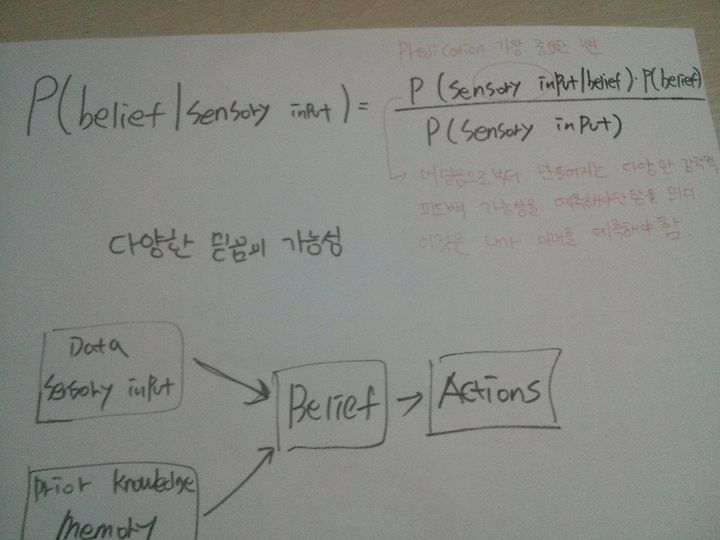 Predication 가장 중요한 부분
P(belief|sensory input) = P(sensory input|belief)·P(belief)
P(sensory input)
내 믿음으로부터 만들어지는 다양한 감각적
피드백 가능성을 예측해야만 함을 의미
이것은 내가 미래를 예측해야 함.
다양한 믿음의 가능성
Data
sensory input
Belief
Actions
prior knowledge
memory